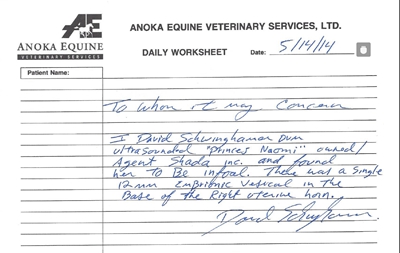 ANOKA EQUINE VETERINARY SERVICES, LTD.
AE
ANOKA EQUINE
VETERINARY SERVICES
DAILY WORKSHEET Date: 5/14/14
Patient Name:
To whom it may Concern
I David Schwinghamer DVM
ultrasounded "Princes Naomi" owned/
Agent Shada inc. and found
her To Be infoal. There was a single
12mm Embrionic Vesical in the
Base of the Right uterine horn.
David Schwinghamer